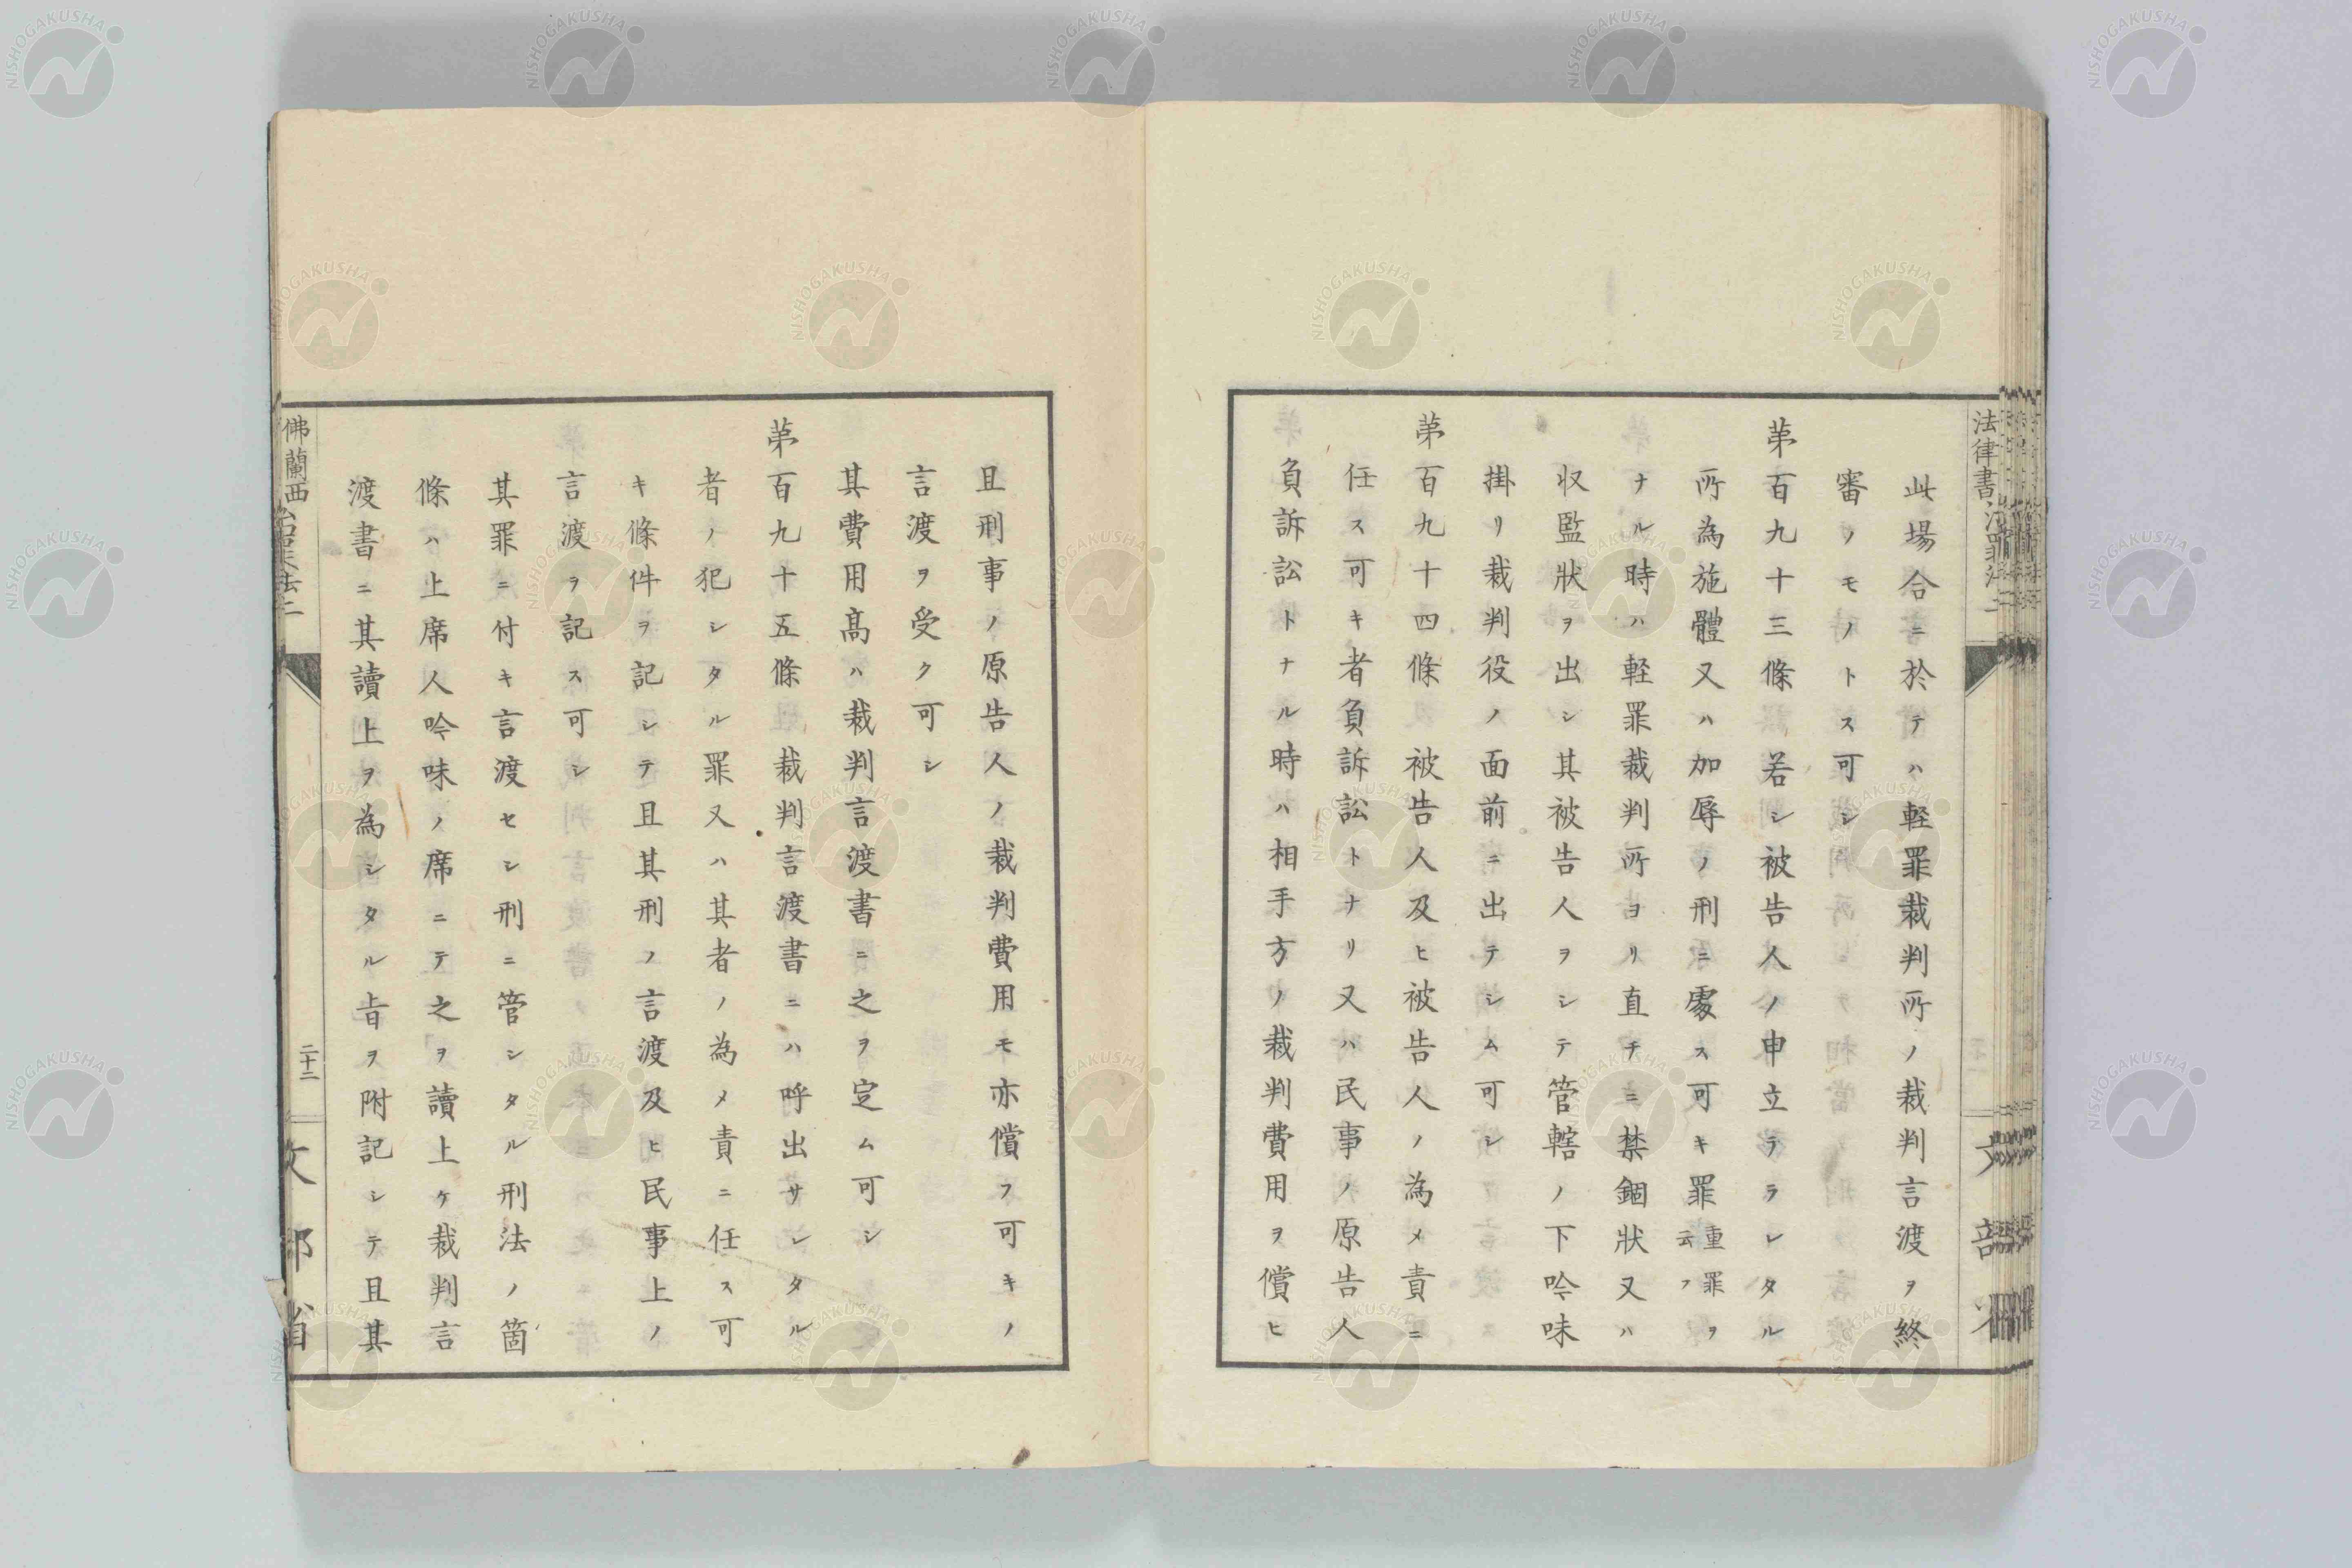 此場合ニ於テハ輕罪裁判所ノ裁判言渡ヲ終
審ノモノトス可シ
第百九十三條　若シ被告人ノ申立テラレタル
所為施體又ハ加辱ノ刑ニ處ス可キ罪重罪ヲ云フ
ナル時ハ輕罪裁判所ヨリ直チニ禁錮狀又ハ
収監狀ヲ出シ其被告人ヲシテ管轄ノ下吟味
掛リ裁判役ノ面前ニ出テシム可シ
第百九十四條　被告人及ヒ被告人ノ為メ責ニ
任ス可キ者負訴訟トナリ又ハ民事ノ原告人
負訴訟トナル時ハ相手方ノ裁判費用ヲ償ヒ
且刑事ノ原告人ノ裁判費用モ亦償フ可キノ
言渡ヲ受ク可シ
其費用髙ハ裁判言渡書ニ之ヲ定ム可シ
第百九十五條　裁判言渡書ニハ呼出サレタル
者ノ犯シタル罪又ハ其者ノ為メ責ニ任ス可
キ條件ヲ記シテ且其刑ノ言渡及ヒ民事上ノ
言渡ヲ記ス可シ
其罪ニ付キ言渡セシ刑ニ管シタル刑法ノ箇
條ハ上席人吟味ノ席ニテ之ヲ讀上ケ裁判言
渡書ニ其讀上ヲ為シタル旨ヲ附記シテ且其
佛蘭西
二十二
法律書
NISHOGAKUSHA